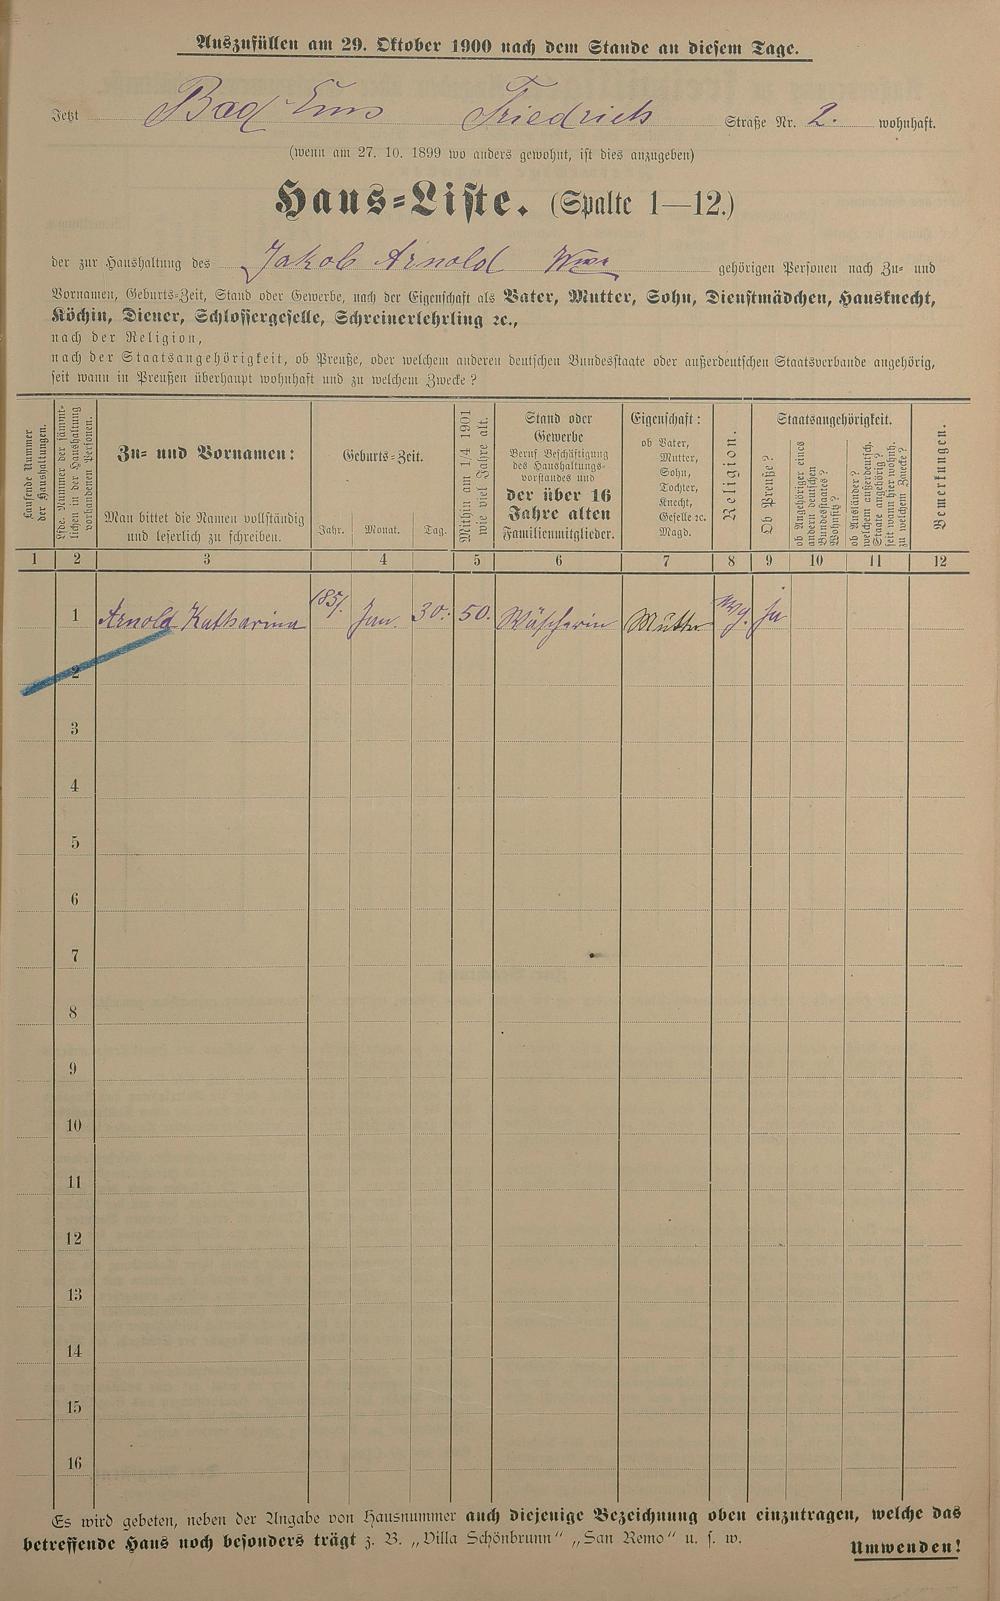 Auszufüllen am 29. Oktober 1900 nach dem Stande an diesem Tage.
Jetzt Bad Ems Friedrich Straße Nr. 2. wohnhaft.
(wenn am 27. 10. 1899 wo anders gewohnt, ist dies anzugeben)
Haus=Liste. (Spalte 1—12.)
der zur Haushaltung des Jakob Arnold Wwe gehörigen Personen nach Zu= und
Vornamen, Geburts=Zeit, Stand oder Gewerbe, nach der Eigenschaft als Vater, Mutter, Sohn, Dienstmädchen, Hausknecht,
Köchin, Diener, Schlossergeselle, Schreinerlehrling ꝛc.,
nach der Religion,
nach der Staatsangehörigkeit, ob Preuße, oder welchem anderen deutschen Bundesstaate oder außerdeutschen Staatsverbande angehörig,
seit wann in Preußen überhaupt wohnhaft und zu welchem Zwecke?
Laufende Nummer
der Haushaltungen.
Lfde. Nummer der sämmt=
lichen in der Haushaltung
vorhandenen Personen.
Zu= und Vornamen:
Man bittet die Namen vollständig
und leserlich zu schreiben.
Geburts=Zeit.
Jahr. Monat. Tag.
Mithin am 1/4 1901
wie viel Jahre alt.
Stand oder
Gewerbe
Beruf Beschäftigung
des Haushaltungs=
vorstandes und
der über 16
Jahre alten
Familienmitglieder.
Eigenschaft:
ob Vater,
Mutter,
Sohn,
Tochter,
Knecht,
Geselle ꝛc.
Magd.
Religion.
Staatsangehörigkeit.
Ob Preuße?
ob Angehöriger eines
andern deutschen
Bundesstaates?
Wohnsitz?
ob Ausländer?
welchem außerdeutsch.
Staate angehörig?
seit wann hier wohnh.
zu welchem Zwecke?
Bemerkungen.
1 2 3 4 5 6 7 8 9 10 11 12
1 Arnold Katharina 1851. Jan. 30. 50. Wäscherin Mutter evg. ja
2
3
4
5
6
7
8
9
10
11
12
13
14
15
16
Es wird gebeten, neben der Angabe von Hausnummer auch diejenige Bezeichnung oben einzutragen, welche das
betreffende Haus noch besonders trägt z. B. „Villa Schönbrunn“ „San Remo“ u. s. w.
Umwenden!